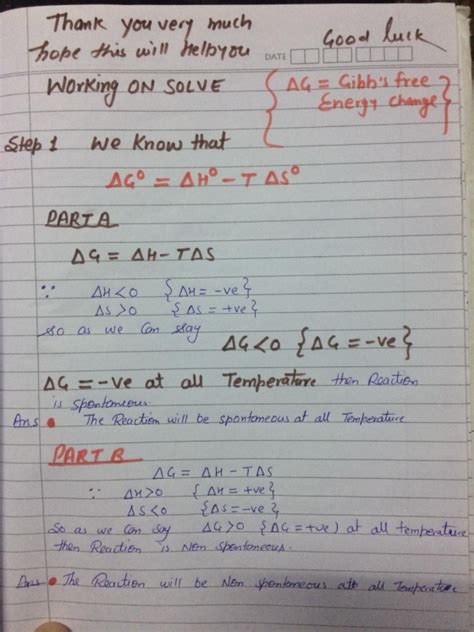 Thank you very much
hope this will help you
DATE
Good luck
Working ON SOLVE
ΔG = Gibb's free
Energy change
Step 1 We Know that
ΔG° = ΔH° - TΔS°
PART A
ΔG = ΔH - TΔS
∵ ΔH<0 {ΔH = -ve}
ΔS>0 {ΔS = +ve}
so as we can say
ΔG<0 {ΔG = -ve}
ΔG = -ve at all Temperature then Reaction
is spontaneous
Ans • The Reaction will be spontaneous at all Temperature
PART B
ΔG = ΔH - TΔS
∵ ΔH>0 {ΔH = +ve}
ΔS<0 {ΔS = -ve}
So as we can say ΔG>0 {ΔG = +ve) at all temperature
then Reaction is Non spontaneous.
Ans • The Reaction will be Non spontaneous at all Temperature